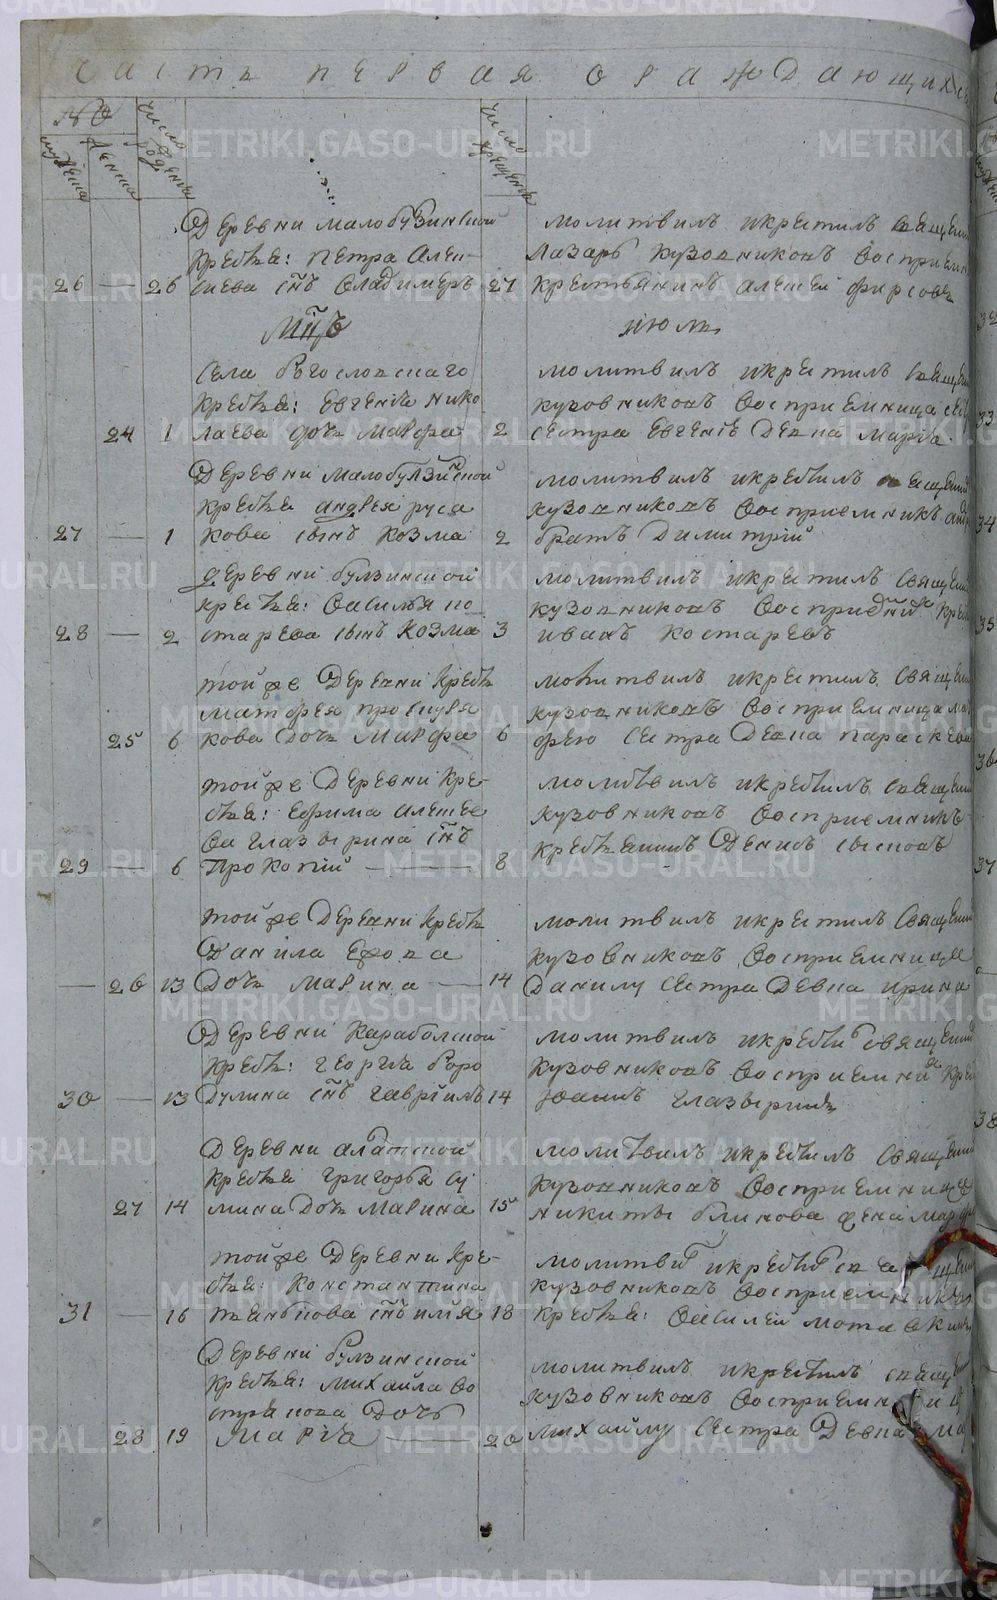 часть первая ораждающихся
№
мужеска
женска
число рожденія
число крещенія
Деревни малобулзинской
Кресть: Петра Алек-
26 — 26 сіева сн҃ъ Владимеръ 27
молитвилъ икрестилъ священни
Лазарь кузовниковъ Воспріемн
крестьянинъ алексей фирсовъ
Мц҃ъ июль
Села богословскаго
кресть: Евгенія нико
24 1 лаева дочь Марфа 2
молитвилъ икрестилъ священ
кузовниковъ Воспріемница
сестра Евгеніе Девка Марія
Деревни малобулзинской
кресть андрея руса
27 — 1 кова сынъ козма 2
молитвилъ икрестилъ священ
кузовниковъ Воспріемникъ анд
братъ Димитрій
деревни булзинской
кресть: Василья ко
28 — 2 старева сынъ козма 3
молитвилъ икрестилъ Священ
кузовниковъ кре
иванъ костаревъ
тойже Деревни кресть
матфея проскуря
25 6 кова Дочь Марфа 6
молитвилъ икрестилъ Священ
кузовниковъ Воспріемница ма
фею сестра Девка параскева
тойже Деревни кре-
стья: Ефима алексее
ва глазырина сн҃ъ
29 — 6 Прокопій 8
молитвилъ икрестилъ священ
кузовниковъ Воспріемникъ
крестьянинъ Денисъ сысковъ
тойже Деревни кресть
Данила Ежова
— 26 13 Дочь Марина 14
молитвилъ икрестилъ Священ
кузовниковъ Воспріемница
Данилу сестра Девка ирина
Деревни Карабольской
кресть: георгія боро
30 — 13 дулина сн҃ъ гавріилъ 14
молитвилъ икрестилъ священ
кузовниковъ Воспріемник кре
Іоаннъ глазыринъ
Деревни
кресть григорья су
27 14 мина Дочь Марина 15
молитвилъ икрестилъ Священ
кузовниковъ Воспріемница
никиты блинова жена марфа
тойже Деревни кре-
стья: константина
31 — 16 пьянкова сн҃ъ илія 18
молитвилъ икрестилъ
кузовниковъ Воспріемникъ
кресть: Василей мотавкинъ
Деревни булзинской
кресть: михайла во
строкова Дочь
28 19 Марія 20
молитвилъ икрестилъ священ
кузовниковъ Воспріемни
михайлу сестра Девка
32
33
34
35
36
37
38
METRIKI.GASO-URAL.RU